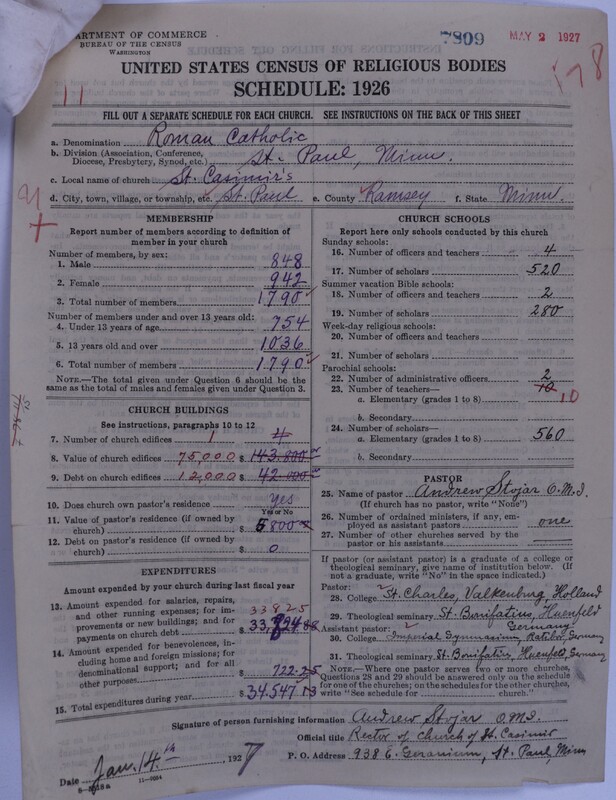 DEPARTMENT OF COMMERCE
BUREAU OF THE CENSUS
WASHINGTON
7809 MAY 2 1927
178
11
UNITED STATES CENSUS OF RELIGIOUS BODIES
SCHEDULE: 1926
FILL OUT A SEPARATE SCHEDULE FOR EACH CHURCH. SEE INSTRUCTIONS ON THE BACK OF THIS SHEET
a. Denomination Roman Catholic
b. Division (Association, Conference, Diocese, Presbytery, Synod, etc.) St. Paul, Minn.
c. Local name of church St. Casimir's
d. City, town, village, or township, etc. St. Paul e. County Ramsey f. State Minn.
MEMBERSHIP
Report number of members according to definition of member in your church
Number of members, by sex:
1. Male 848
2. Female 942
3. Total number of members 1790
Number of members under and over 13 years old:
4. Under 13 years of age 754
5. 13 years old and over 1036
6. Total number of members 1790
NOTE.—The total given under Question 6 should be the same as the total of males and females given under Question 3.
CHURCH BUILDINGS
See instructions, paragraphs 10 to 12
7. Number of church edifices 1 4
8. Value of church edifices 75,000 $ 143.800
9. Debt on church edifices 12,000 $ 42.000
10. Does church own pastor's residence? Yes
Yes or No
11. Value of pastor's residence (if owned by church) $ 5800
12. Debt on pastor's residence (if owned by church) $ 0
EXPENDITURES
Amount expended by your church during last fiscal year
13. Amount expended for salaries, repairs, and other running expenses; for improvements or new buildings; and for payments on church debt 33825 $ 33,824 88
14. Amount expended for benevolences, including home and foreign missions; for denominational support; and for all other purposes $ 722.25
15. Total expenditures during year $ 34.547 13
CHURCH SCHOOLS
Report here only schools conducted by this church
Sunday schools:
16. Number of officers and teachers 4
17. Number of scholars 520
Summer vacation Bible schools:
18. Number of officers and teachers 2
19. Number of scholars 280
Week-day religious schools:
20. Number of officers and teachers
21. Number of scholars
Parochial schools:
22. Number of administrative officers 2
23. Number of teachers— 12
a. Elementary (grades 1 to 8) 10
b. Secondary
24. Number of scholars—
a. Elementary (grades 1 to 8) 560
b. Secondary
PASTOR
25. Name of pastor Andrew Stojar O.M.I.
(If church has no pastor, write "None")
26. Number of ordained ministers, if any, employed as assistant pastors one
27. Number of other churches served by the pastor or his assistants
If pastor (or assistant pastor) is a graduate of a college or theological seminary, give name of institution below. (If not a graduate, write "No" in the space indicated.)
Pastor:
28. College St. Charles, Valkenburg, Holland
29. Theological seminary St. Bonifatius, Huenfeld Germany
Assistant pastor:
30. College Imperial Gymnasium, Ratibor, Germany
31. Theological seminary St. Bonifatius, Huenfeld, Germany
NOTE.—Where one pastor serves two or more churches, Questions 28 and 29 should be answered only on the schedule for one of the churches; on the schedules for the other churches, write "See schedule for church."
Signature of person furnishing information Andrew Stojar O.M.I.
Official title Rector of Church of St. Casimir
Date Jan. 14th 1927 P. O. Address 938 E. Geranium, St. Paul, Minn
8-5218a 11-9064